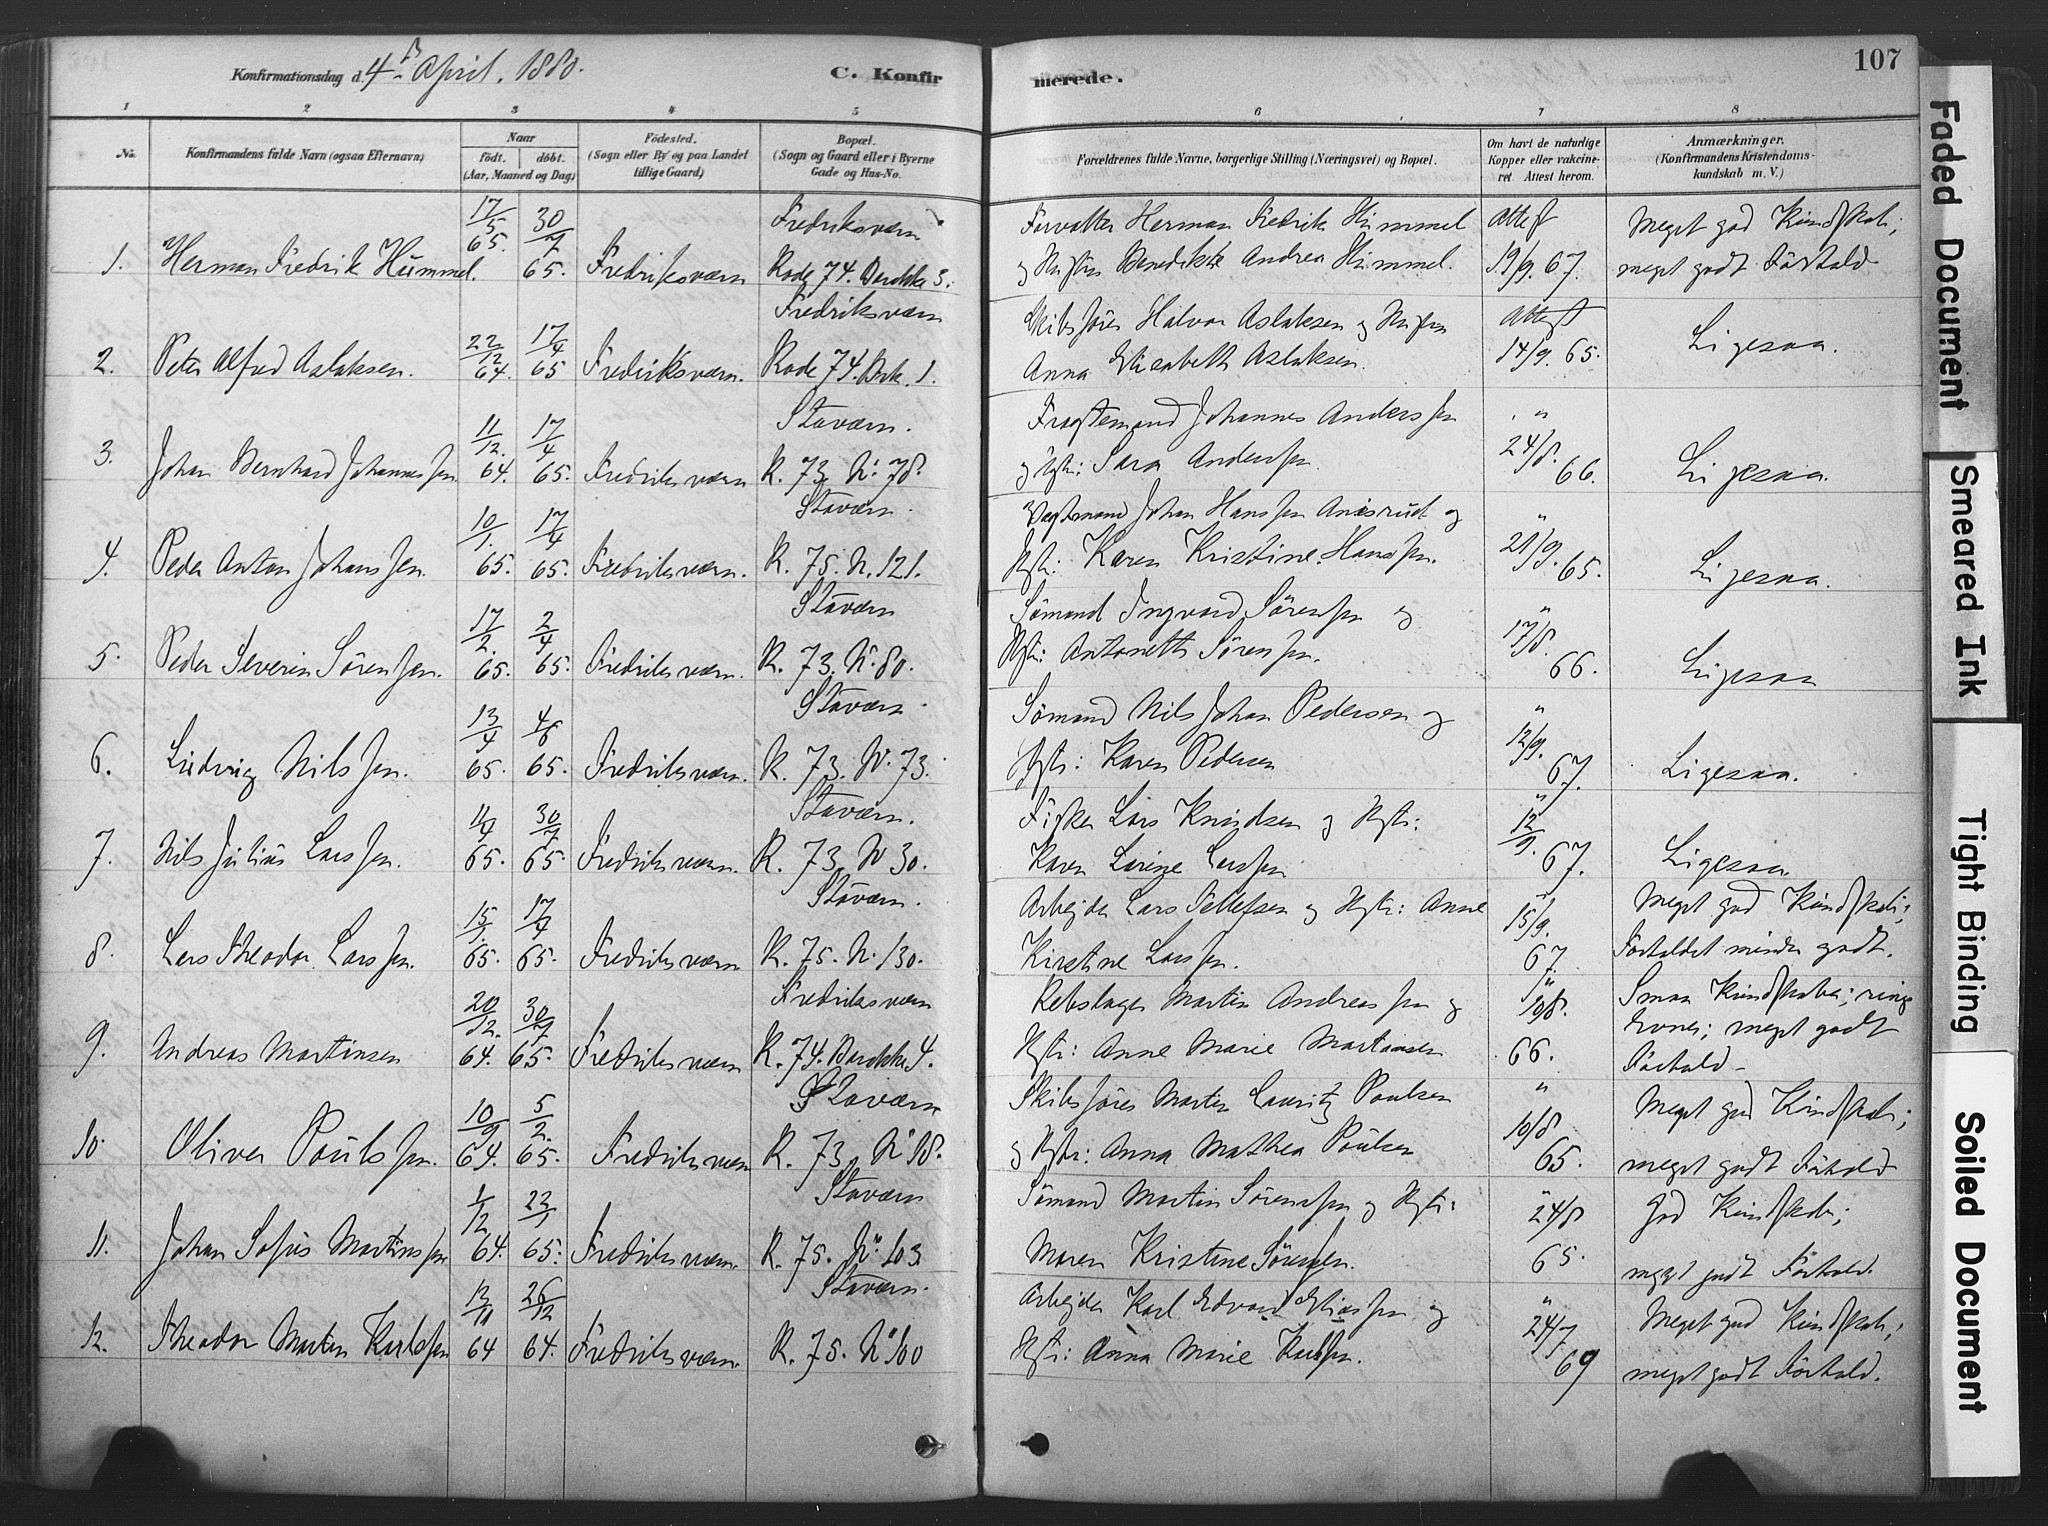 Konfirmationsdag d. 4de April. 1880.
C. Konfirmerede.
107
1 2 3 4 5 6 7 8
No.
Konfirmandens fulde Navn (ogsaa Efternavn)
Naar
født. døbt.
(Aar, Maaned og Dag)
Fødested.
(Sogn eller By og paa Landet
tillige Gaard)
Bopæl.
(Sogn og Gaard eller i Byerne
Gade og Hus-No.
Forældrenes fulde Navne, borgerlige Stilling (Næringsvei) og Bopæl.
Om havt de naturlige
Kopper eller vakcine-
ret Attest herom.
Anmærkninger.
(Konfirmandens Kristendoms-
kundskab m. V.)
1. Herman Fredrik Hummel. 17/5 65. 30/7 65. Fredriksværn
Fredriksværn
Rode 74. Barakke 3.
Forvalter Herman Fredrik Hummel
og Hustru Benedikte Andrea Hummel.
Attest
19/9. 67.
Meget god Kundskab;
meget godt Forhold
2. Peter Alfred Aslaksen. 22/12 64. 17/4 65 Fredriksværn.
Fredriksværn
Rode 74. Brk. 1.
Skibsfører Halvor Aslaksen og Hustru
Anna Elisabeth Aslaksen.
Attest
14/9. 65.
Ligesaa.
3. Johan Bernhard Johannessen 11/12. 64. 17/4 65. Fredriksværn
Staværn.
R. 73. N. 78.
Johannes Anderssen
og Hstr: Sara Anderssen.
"
24/8. 66.
Ligesaa.
4. Peder Anton Johanssen. 10/1. 65. 17/4 65. Fredriksværn.
Staværn.
R. 75. N. 121.
Johan Hanssen Anisrud og
Hstr: Karen Kristine Hanssen.
"
21/9. 65.
Ligesaa.
5. Peder Severin Sørenssen. 17/2. 65. 2/4 65. Fredriksværn.
Staværn
R. 73. N. 80.
Sømand Ingvard Sørenssen og
Hstr: Antonette Sørenssen.
"
17/8. 66.
Ligesaa
6. Ludvig Nilssen. 13/4 65. 4/6 65. Fredriksværn.
Staværn.
R. 73. N. 73.
Sømand Nils Johan Pedersen og
Hstr: Karen Pedersen
"
12/9. 67.
Ligesaa.
7. Nils Julius Larssen. 11/4 65. 30/7 65. Fredriksværn.
Staværn.
R. 73. N 30.
Fisker Lars Knudsen og Hstr:
Karen Larssen
"
12/9. 67.
Ligesaa.
8. Lars Theodor Larssen. 15/1. 65. 17/4 65. Fredriksværn
Staværn.
R. 75. N. 130.
Arbejder Lars Tellefsen og Hstr: Anne
Kirstine Larssen.
"
15/9. 67.
Meget god Kundskab;
Forholdet mindre godt.
9. Andreas Martinsen 20/12. 64. 30/7 65. Fredriksværn
Fredriksværn
R. 74. Barakke 4.
Rebslager Martin Andreassen og
Hstr: Anne Marie Martinsen
"
10/8. 66.
Smaa Kundskaber; ringe
Evner; meget godt
Forhold -
10. Oliver Poulssen. 10/9 64. 5/2. 65. Fredriksværn
Staværn
R. 73. N 18.
Skibsfører Martin Lauritz Poulsen
og Hstr: Anna Mathea Poulsen
"
10/8 65.
Meget god Kundskab;
meget godt Forhold
11. Johan Sofus Martinssen 1/12 64. 23/1 65. Fredriksværn.
Staværn
R. 75. No. 103
Sømand Martin Sørenssen og Hstr:
Maren Kristine Sørensen.
"
24/8 65.
God Kundskab;
meget godt Forhold.
12. Theodor Martin Karlssen 13/11 64 26/12 64. Fredriksværn.
Staværn.
R. 75. No 100
Arbejder Karl Edvard Eliassen og
Hstr: Anna Marie Karlssen.
"
24/7 69
Meget god Kundskab;
meget godt Forhold.
Faded Document
Smeared Ink
Tight Binding
Soiled Document